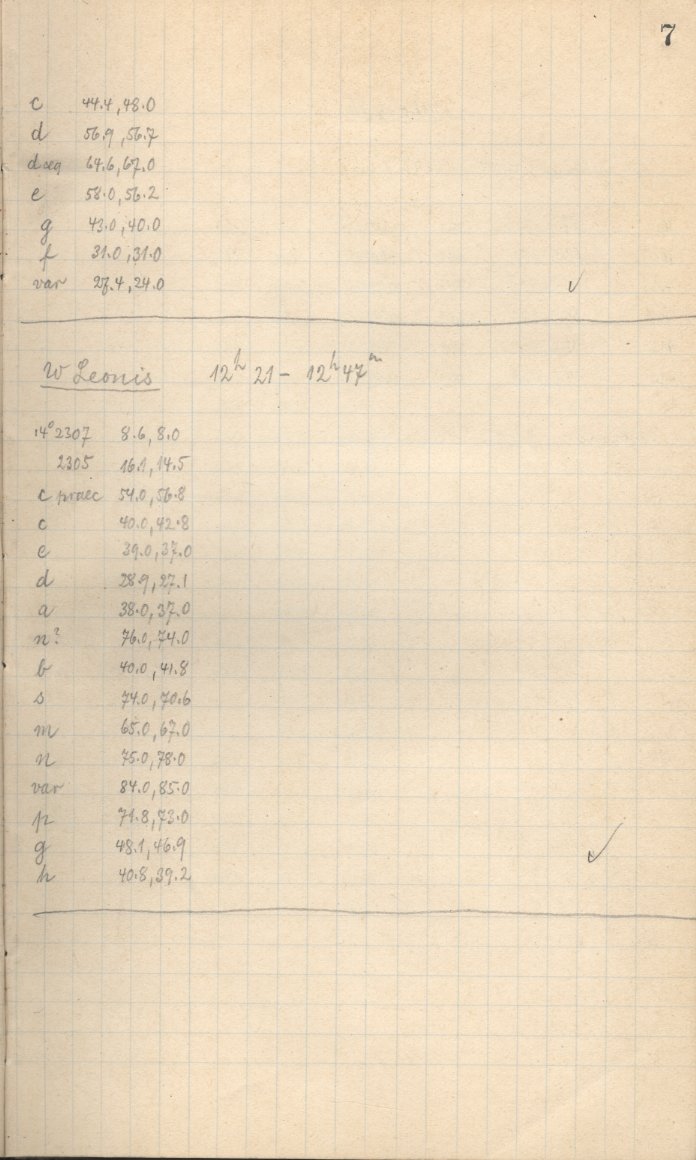 7
c 44.4, 48.0
d 56.9, 56.7
d seq 64.6, 67.0
e 58.0, 56.2
g 43.0, 40.0
f 31.0, 31.0
var 27.4, 24.0
W Leonis 12h 21 – 12h 47m
14° 2307 8.6, 8.0
2305 16.1, 14.5
c praec 54.0, 56.8
c 40.0, 42.8
e 39.0, 37.0
d 28.9, 27.1
a 38.0, 37.0
n? 76.0, 74.0
b 40.0, 41.8
s 74.0, 70.6
m 65.0, 67.0
n 75.0, 78.0
var 84.0, 85.0
p 71.8, 73.0
g 48.1, 46.9
h 40.8, 39.2